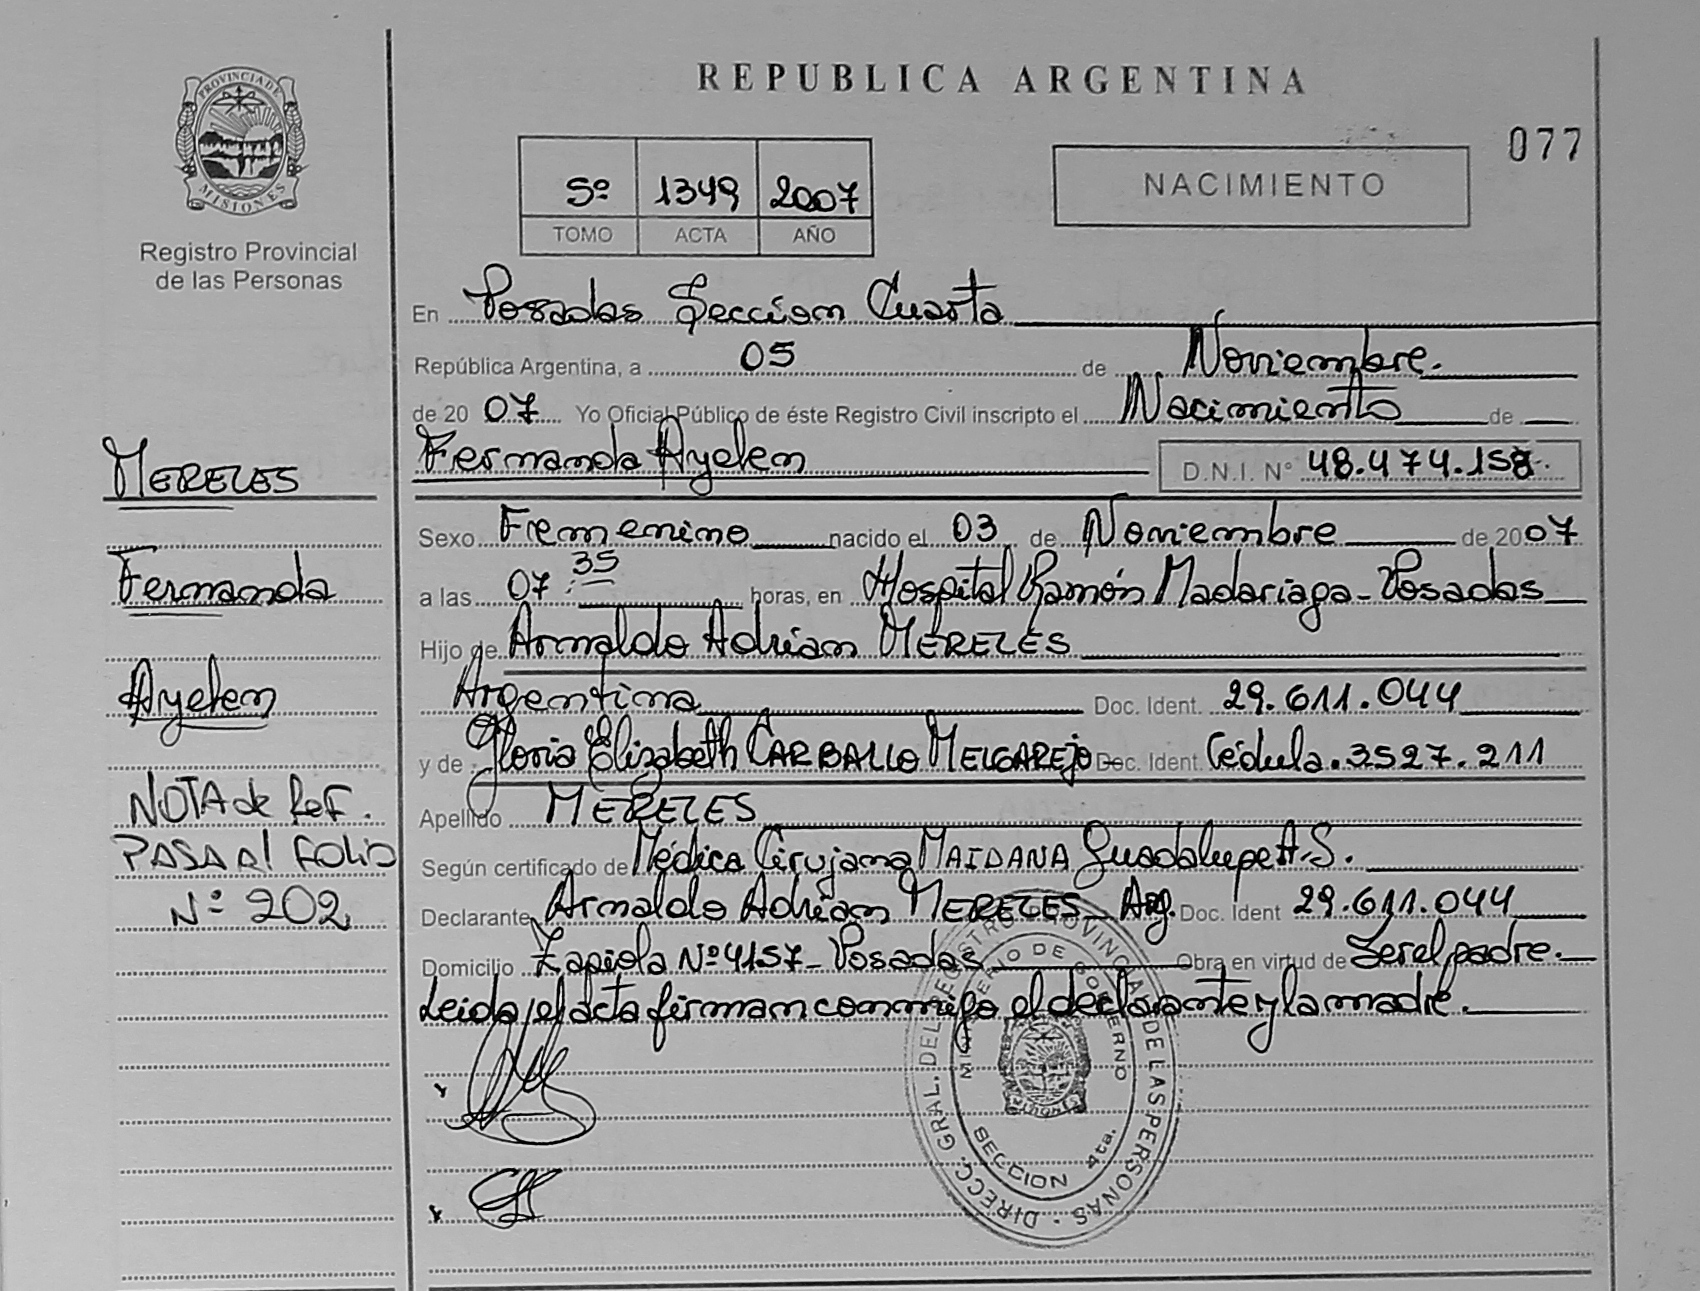 REPUBLICA ARGENTINA
PROVINCIA DE MISIONES
Registro Provincial
de las Personas
077
5º 1349 2007
TOMO ACTA AÑO
NACIMIENTO
En Posadas Sección Cuarta
República Argentina, a 05 de Noviembre.
de 20 07 Yo Oficial Público de éste Registro Civil inscripto el Nacimiento de
Fernanda Ayelen D.N.I. Nº 48.474.158.
Sexo Femenino nacido el 03 de Noviembre de 20 07
a las 07:35 horas, en Hospital Ramón Madariaga - Posadas
Hijo de Arnaldo Adrian MERELES
Argentina Doc. Ident. 29.611.044
y de Gloria Elizabeth CARBALLO MELGAREJO Doc. Ident. Cédula.3527.211
Apellido MERELES
Según certificado de Médica Cirujana MAIDANA Guadalupe A.S.
Declarante Arnaldo Adrian MERELES - Arg. Doc. Ident 29.611.044
Domicilio Zapiola Nº 4157 - Posadas Obra en virtud de Ser el padre.
Leida el acta firman conmigo el declarante y la madre.
MERELES
Fernanda
Ayelen
NOTA de Ref.
PASA al FOLIO
Nº 202
DIRECC. GRAL. DEL REGISTRO PROVINCIAL DE LAS PERSONAS
MINISTERIO DE GOBIERNO
SECCION 4ta.